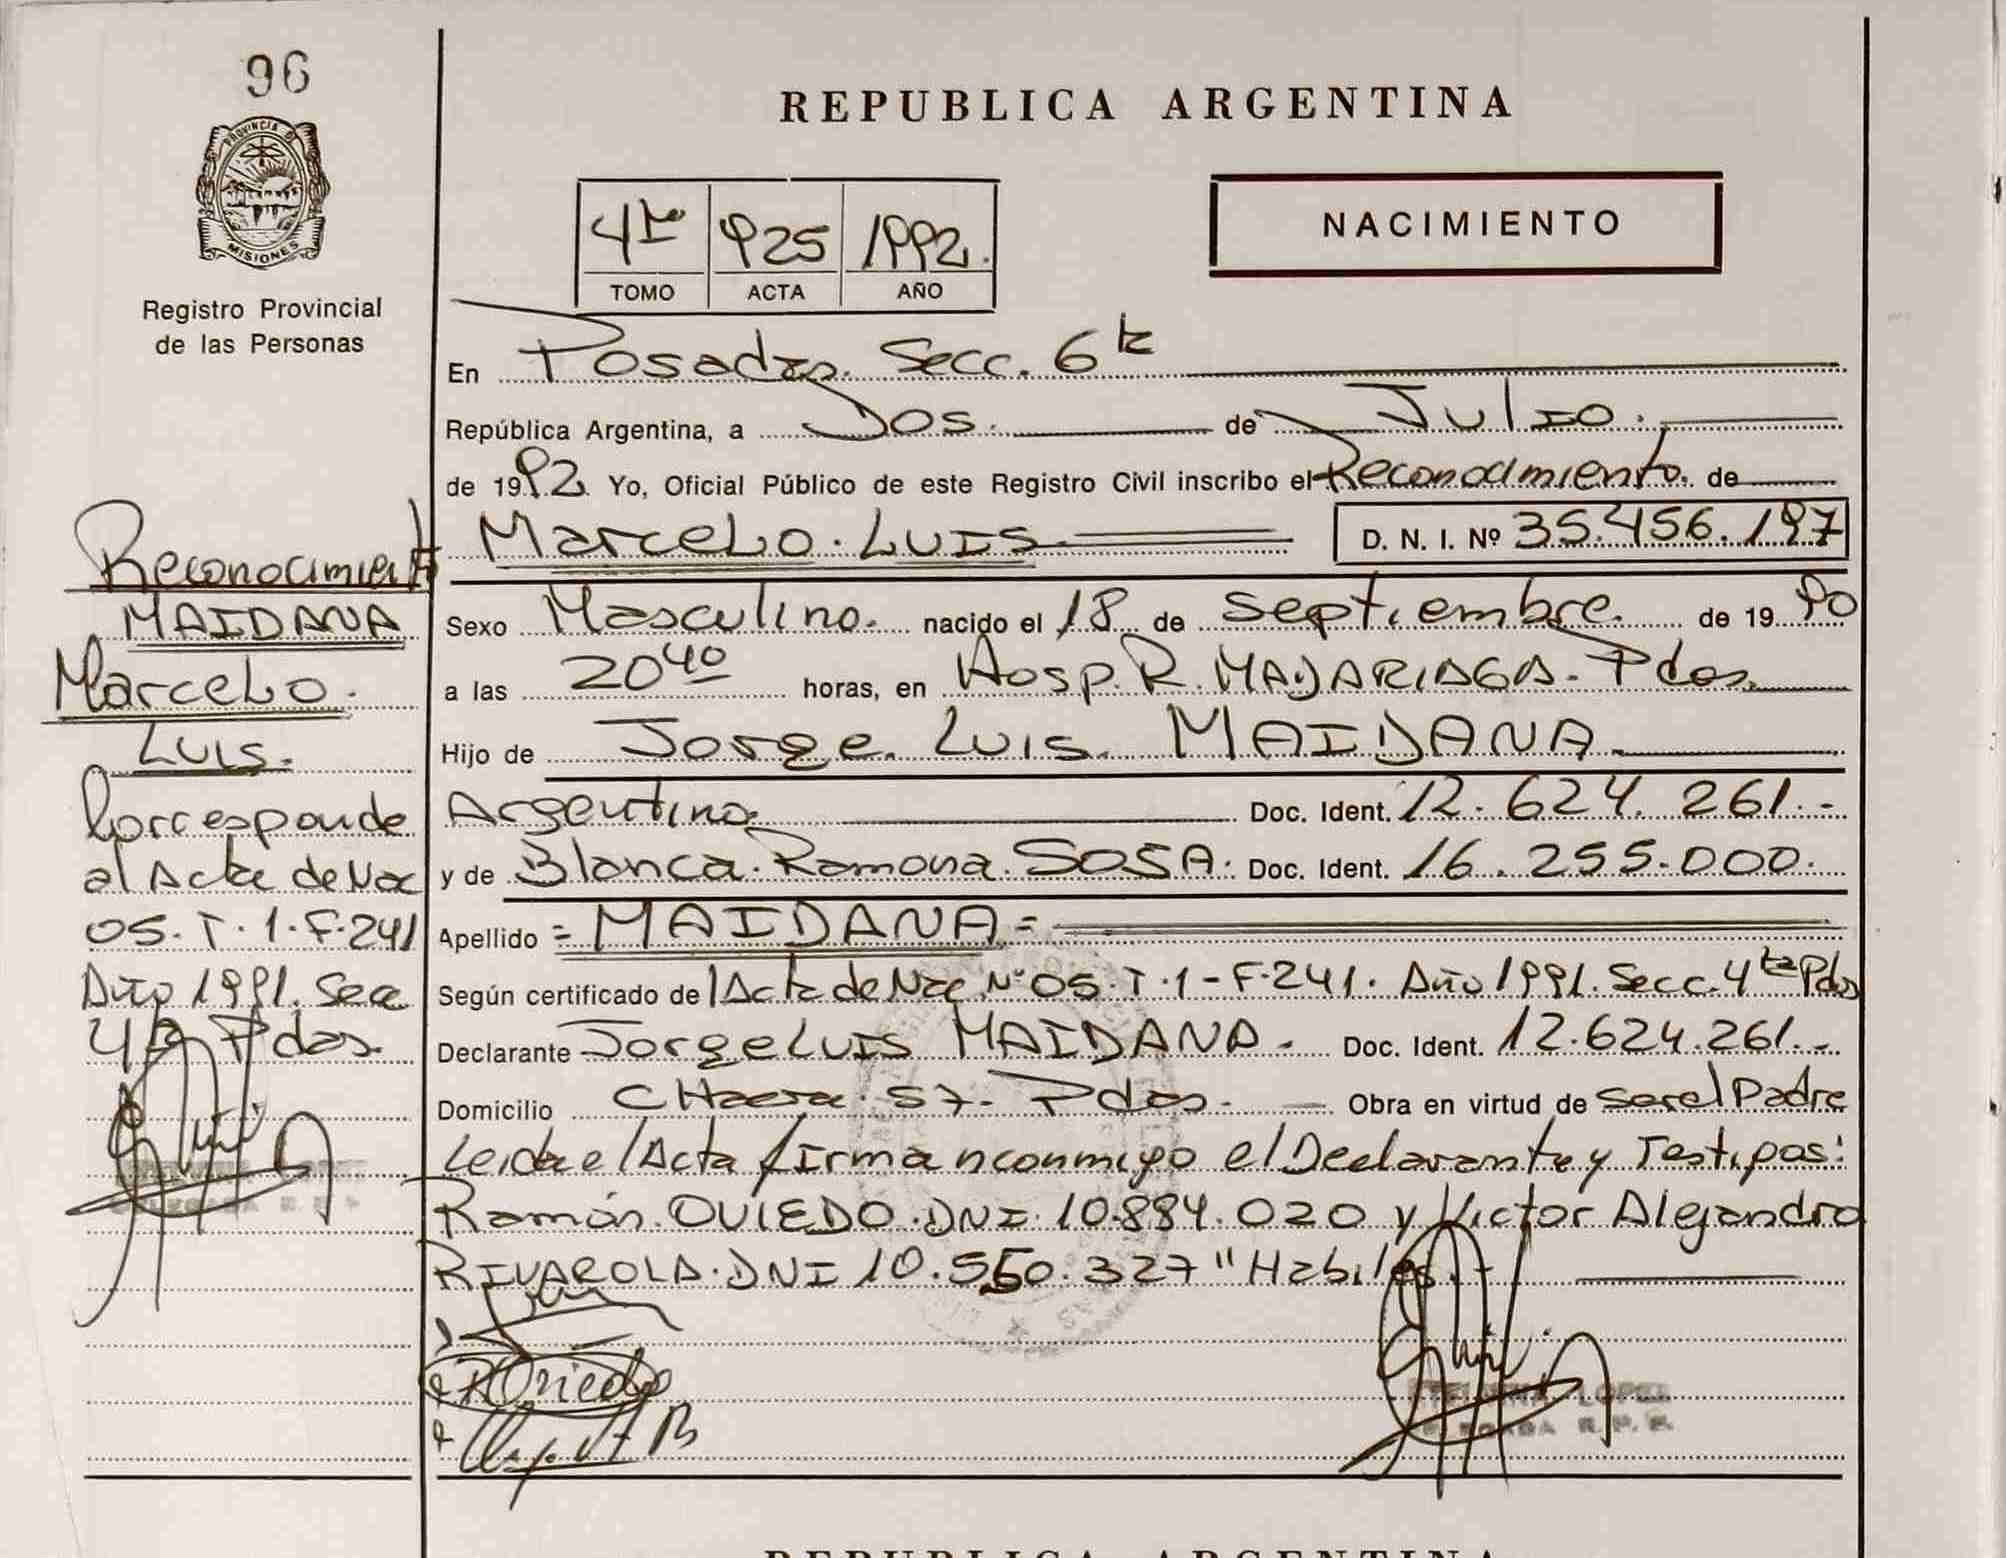 96
PROVINCIA DE
MISIONES
Registro Provincial
de las Personas
REPUBLICA ARGENTINA
NACIMIENTO
4to 925 1992.
TOMO ACTA AÑO
En Posadas. Secc. 6ta
República Argentina, a Dos. de Julio.
de 1992. Yo, Oficial Público de este Registro Civil inscribo el Reconocimiento. de
Marcelo. LUIS. D. N. I. Nº 35.456.197
Sexo Masculino. nacido el 18 de Septiembre. de 1990
a las 20 40 horas, en Hosp. R. MADARIAGA. Pdas.
Hijo de Jorge. Luis. MAIDANA.
Argentino. Doc. Ident. 12.624.261.-
y de Blanca. Ramona. SOSA. Doc. Ident. 16.255.000.
Apellido = MAIDANA =
Según certificado del Acta de Nac. Nº 05. T.1-F.241. Año 1991. Secc. 4ta Pdas
Declarante Jorge LUIS MAIDANA. Doc. Ident. 12.624.261.-
Domicilio CHacra. 57. Pdas. Obra en virtud de ser el Padre
Leida el Acta firman conmigo el Declarante y Testigos:
Ramón. OVIEDO. DNI. 10.884.020 y Victor Alejandro
RIVAROLA. DNI 10.550.327 "Habiles.
ROviedo
LOPEZ
R. P. P.
Reconocimiento
MAIDANA
Marcelo.
LUIS.
Corresponde
al Acta de Nac
05. T. 1. F. 241
Año 1991. Secc
4ta Pdas.
REPUBLICA ARGENTINA